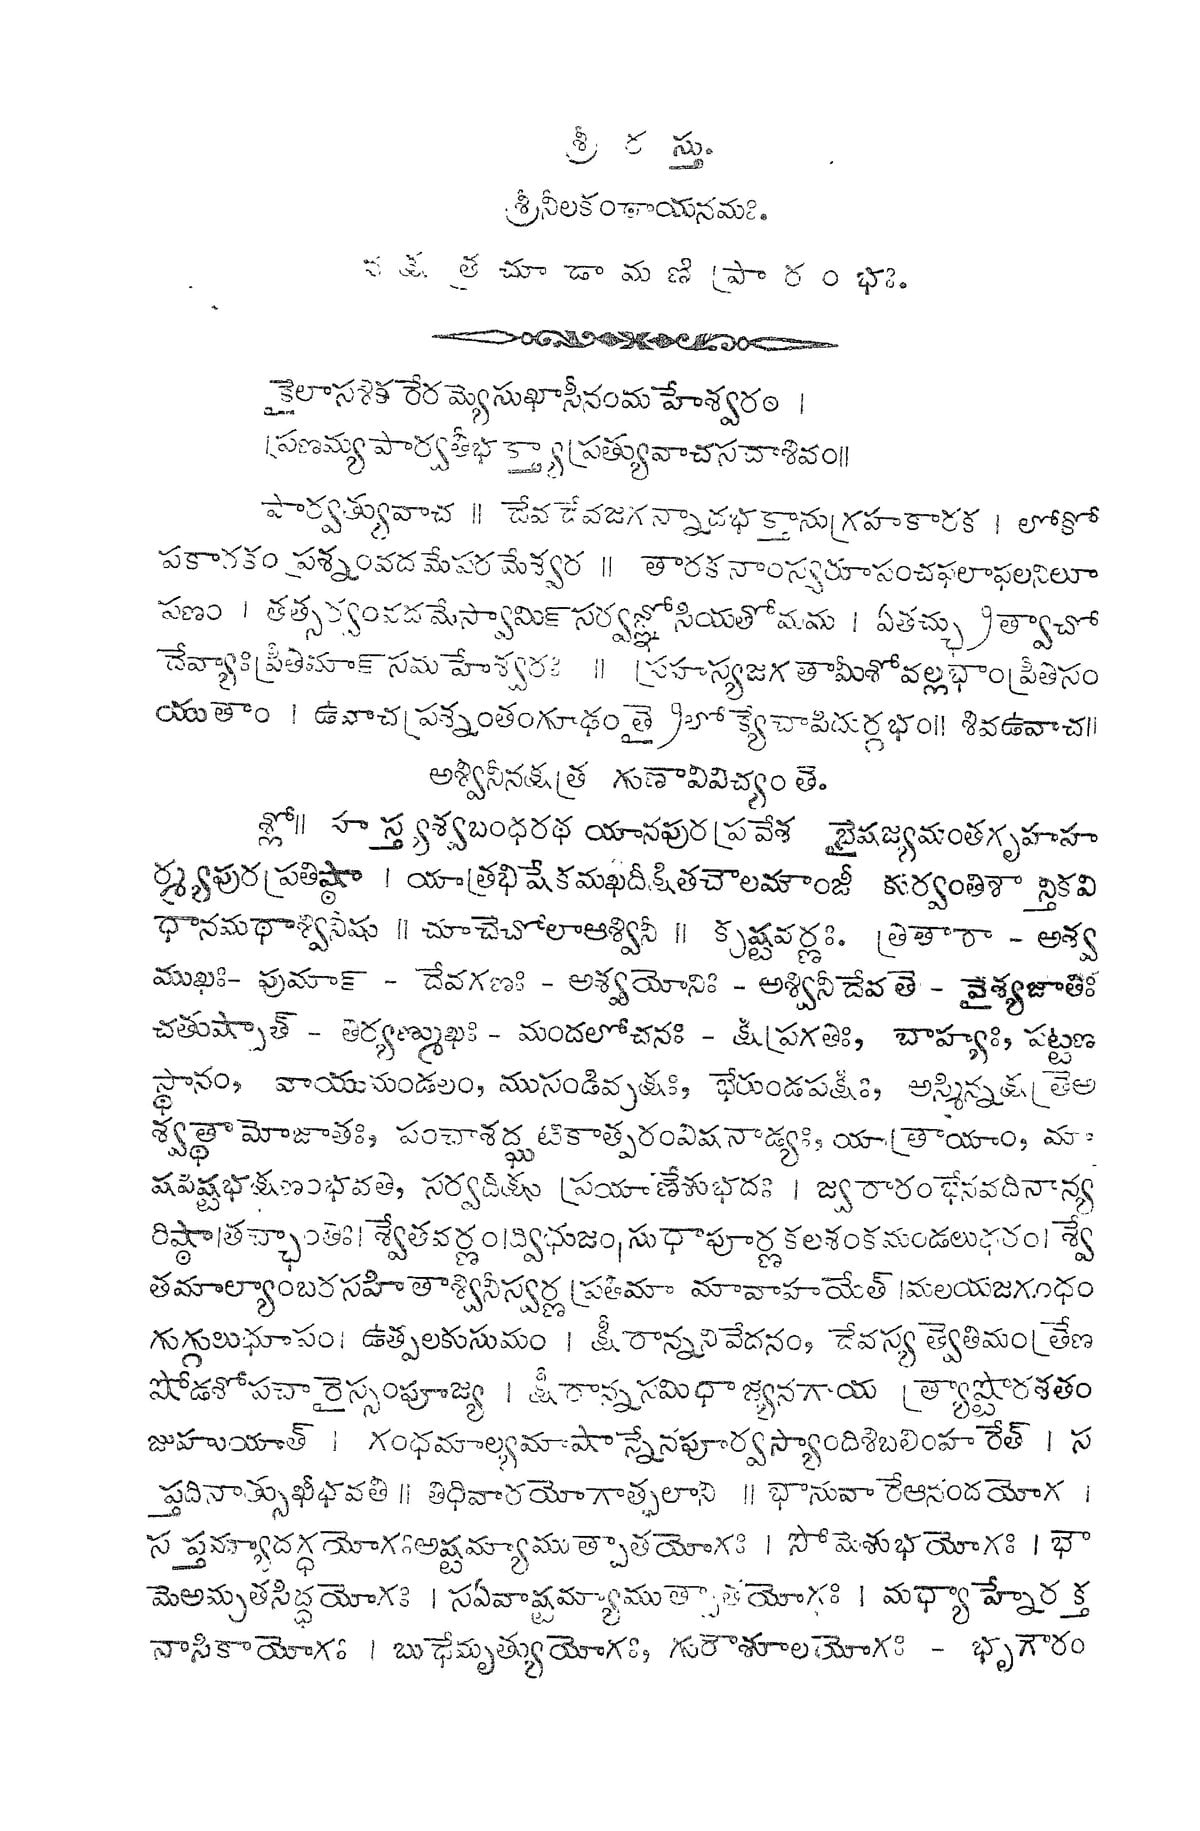 శ్రీ ర స్తు.
శ్రీనీలకంఠాయనమః.
న క్ష త్ర చూ డా మ ణి ప్రా ర ం భః.
కైలాసశిఖరేరమ్యేసుఖాసీనంమహేశ్వరం ।
ప్రణమ్యపార్వతీభక్త్యాప్రత్యువాచసదాశివం॥
పార్వత్యువాచ ॥ దేవదేవజగన్నాథభక్తానుగ్రహకారక । లోకో
పకారకం ప్రశ్నంవదమేపరమేశ్వర ॥ తారకనాంస్వరూపంచఫలాఫలనిరూ
పణం । తత్సర్వంవదమేస్వామిన్ సర్వజ్ఞోసియతోమమ । ఏతచ్ఛ్రుత్వావచో
దేవ్యాఃప్రీతిమాన్ సమహేశ్వరః ॥ ప్రహస్యజగతామీశోవల్లభాంప్రీతిసం
యుతాం । ఉవాచప్రశ్నంతంగూఢంత్రైలోక్యేచాపిదుర్లభం॥ శివఉవాచ॥
అశ్వినీనక్షత్ర గుణావివిచ్యంతే.
శ్లో॥ హస్త్యశ్వబంధరథ యానపురప్రవేశ భైషజ్యమంతగృహహ
ర్మ్యపురప్రతిష్ఠా । యాత్రాభిషేకమఖదీక్షితచౌలమౌంజీ కుర్వంతిశా న్తికవి
ధానమథాశ్వినీషు ॥ చూచేచోలాఆశ్వినీ ॥ కృష్ణవర్ణః. త్రితారా - అశ్వ
ముఖః- పుమాన్ - దేవగణః - అశ్వయోనిః - అశ్వినీదేవతే - వైశ్యజాతిః
చతుష్పాత్ - తిర్యఙ్ముఖః - మందలోచనః - క్షిప్రగతిః, బాహ్యః, పట్టణ
స్థానం, వాయుమండలం, ముసండివృక్షః, భేరుండపక్షీః, అస్మిన్నక్షత్రేఅ
శ్వత్థామోజాతః, పంచాశద్ఘటికాత్పరంవిషనాడ్యః, యాత్రాయాం, మా
షపిష్టభక్షణంభవతి, సర్వదిక్షు ప్రయాణేశుభదః । జ్వరారంభేనవదినాన్య
రిష్ఠా।తచ్ఛాంతిః। శ్వేతవర్ణం।ద్విభుజం,సుధాపూర్ణకలశంకమండలుధరం। శ్వే
తమాల్యాంబరసహితాశ్వినీస్వర్ణ ప్రతిమా మావాహయేత్ ।మలయజగంధం
గుగ్గులుధూపం। ఉత్పలకుసుమం । క్షీరాన్ననివేదనం, దేవస్య త్వేతిమంత్రేణ
షోడశోపచారైస్సంపూజ్య । క్షీరాన్నసమిధాజ్యనగాయ త్ర్యాష్టోరశతం
జుహుయాత్ । గంధమాల్యమాషాన్నేనపూర్వస్యాందిశిబలింహరేత్ । స
ప్తదినాత్సుఖీభవతి॥ తిథివారయోగాత్ఫలాని ॥ భానువారేఆనందయోగ ।
సప్తమ్యాదగ్ధయోగఃఅష్టమ్యాముత్పాతయోగః । సోమేశుభయోగః । భౌ
మేఅమృతసిద్ధయోగః । సఏవాష్టమ్యాముత్పాతయోగః । మధ్యాహ్నేరక్త
నాసికాయోగః । బుధేమృత్యుయోగః, గురౌశూలయోగః - భృగౌరం